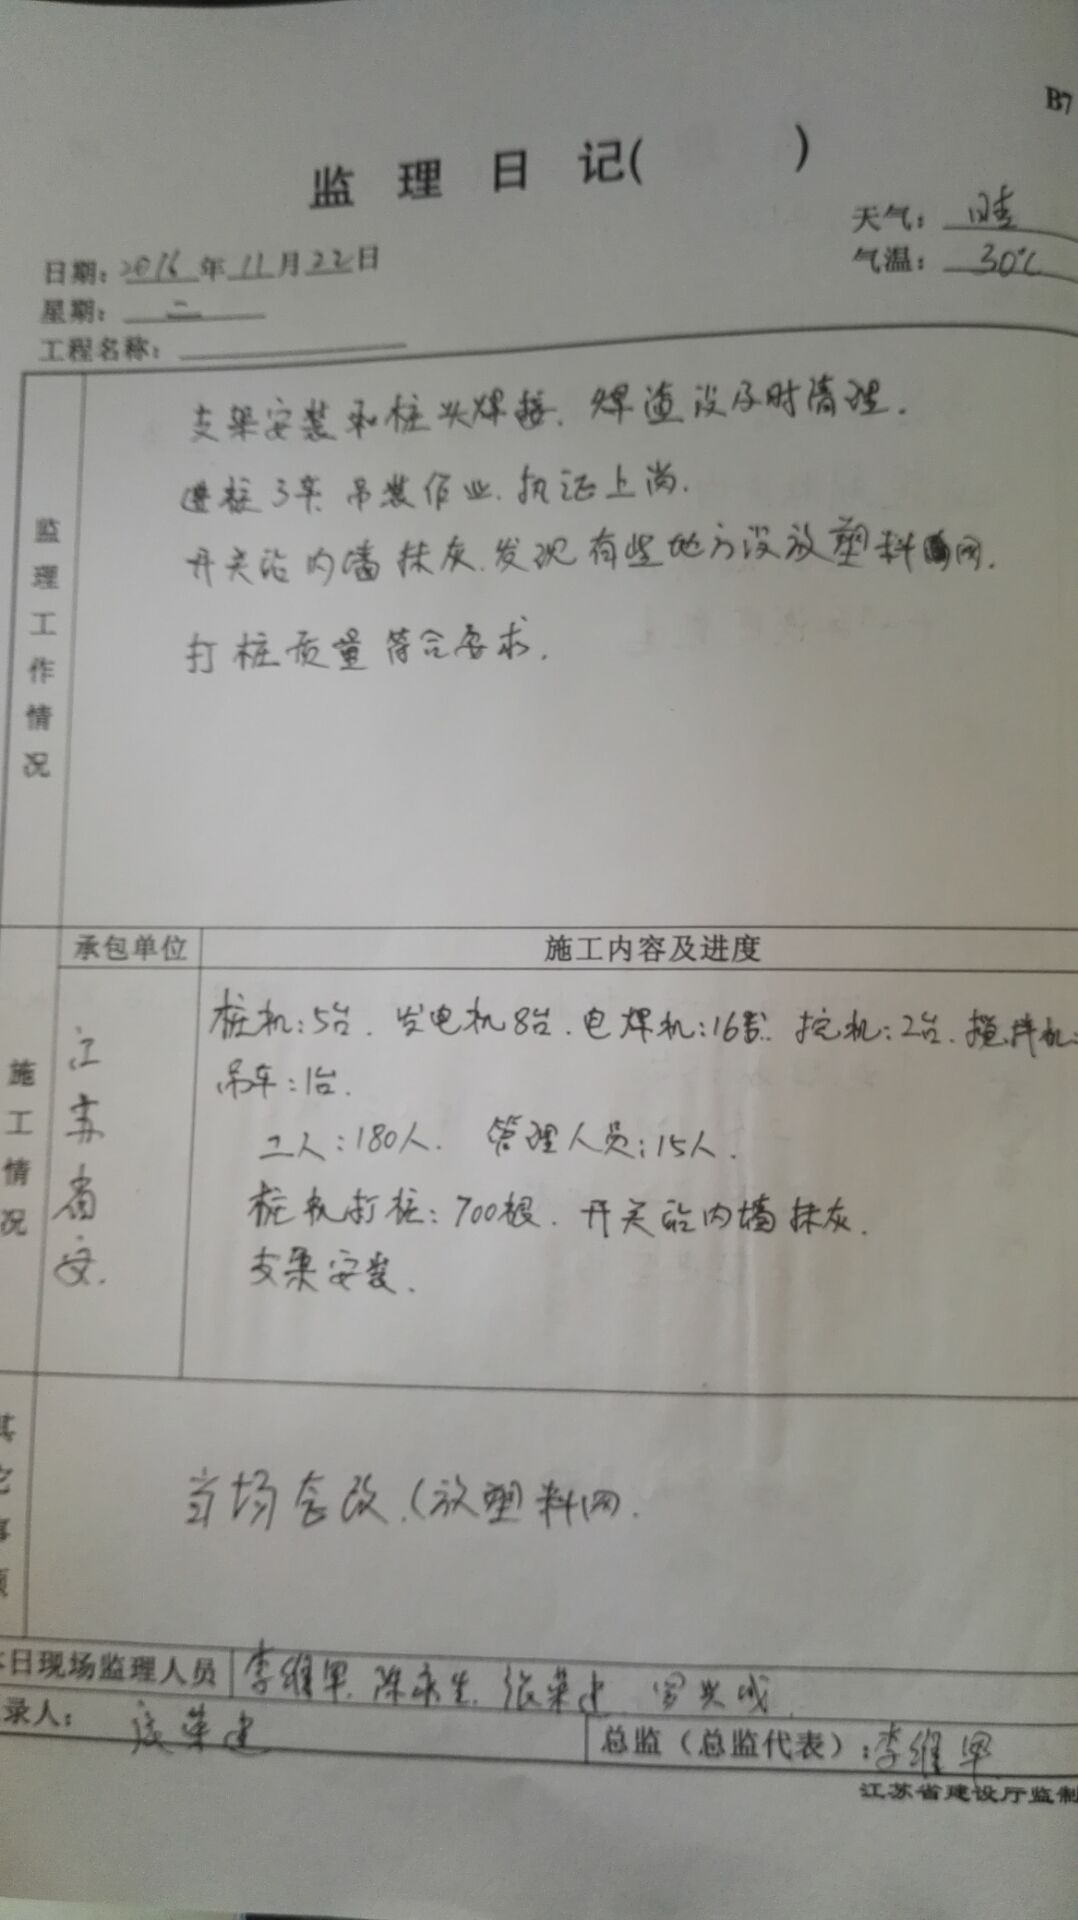 B7
监 理 日 记( )
天气: 晴
日期: 2016 年 11 月 22 日
气温: 30℃
星期: 二
工程名称:
监理工作情况
支架安装和桩头焊接. 焊渣没及时清理.
进桩3车 吊装作业. 执证上岗.
开关站内墙抹灰. 发现有些地方没放塑料网.
打桩质量符合要求.
承包单位 施工内容及进度
施工情况
江苏省安.
桩机:5台. 发电机8台. 电焊机:16台. 挖机:2台. 搅拌机:
吊车:1台.
工人:180人. 管理人员:15人.
桩机打桩:700根. 开关站内墙抹灰.
支架安装.
其它事项
当场整改.(放塑料网.
本日现场监理人员 李维军. 陈永生. 张荣建
录人: 张荣建
总监(总监代表): 李维军
江苏省建设厅监制